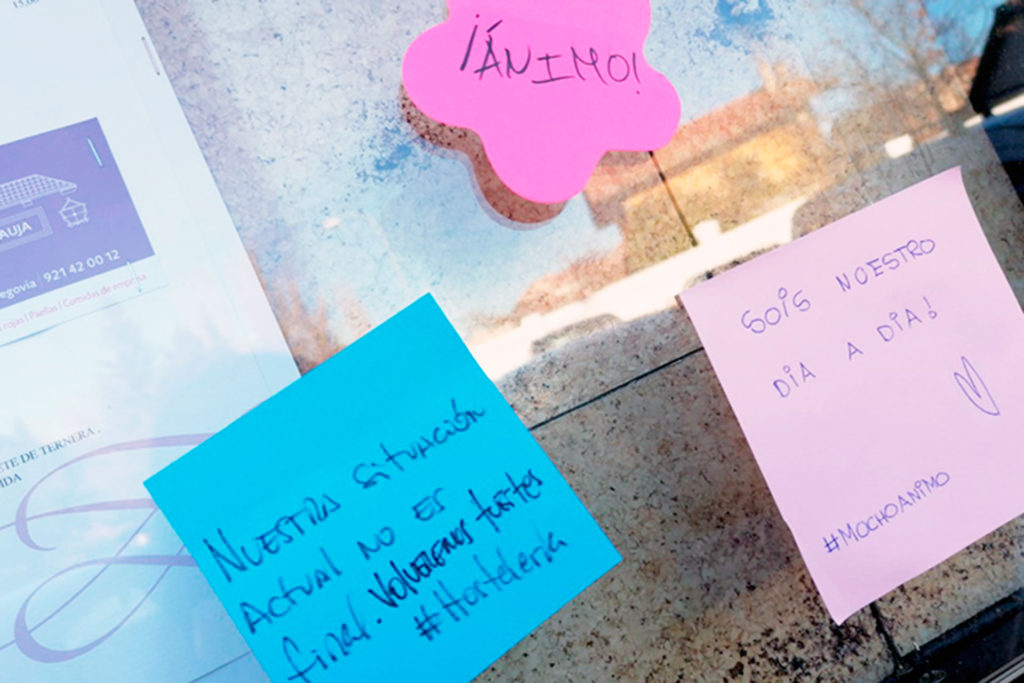 ¡ÁNIMO!
AUJA
egovia | 921 42 00 12
rojas | Paellas | Comidas de empresa
SOIS NUESTRO
DIA A DIA!
#MUCHOANIMO
ETE DE TERNERA .
IDA
NUESTRA SITUACIÓN
ACTUAL NO ES
final. VOLVEREMOS fuertes
#Hostelería